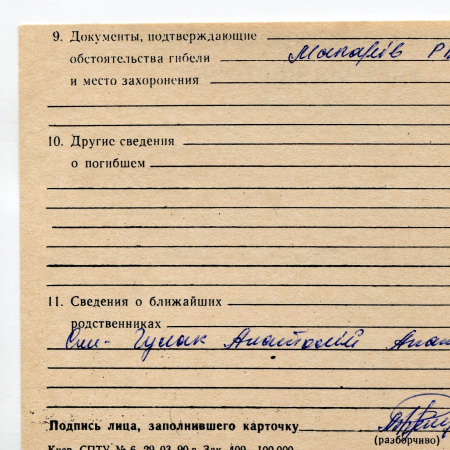 9. Документы, подтверждающие
обстоятельства гибели Макарів Р
и место захоронения
10. Другие сведения
о погибшем
11. Сведения о ближайших
родственниках
Син - Гулак Анатолій Анат
Подпись лица, заполнившего карточку
(разборчиво)
Киев. СПТУ № 6. 29.03.90 г. Зак. 409—100.000